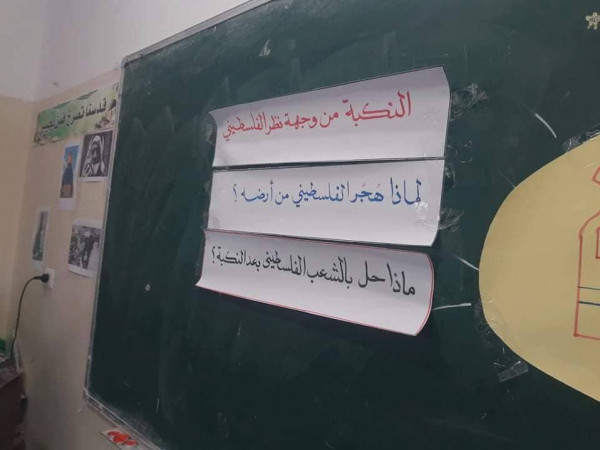 النكبة من وجهة نظر الفلسطيني
لماذا هُجّر الفلسطيني من أرضه ؟
ماذا حل بالشعب الفلسطيني بعد النكبة ؟
قدسنا تصرخ